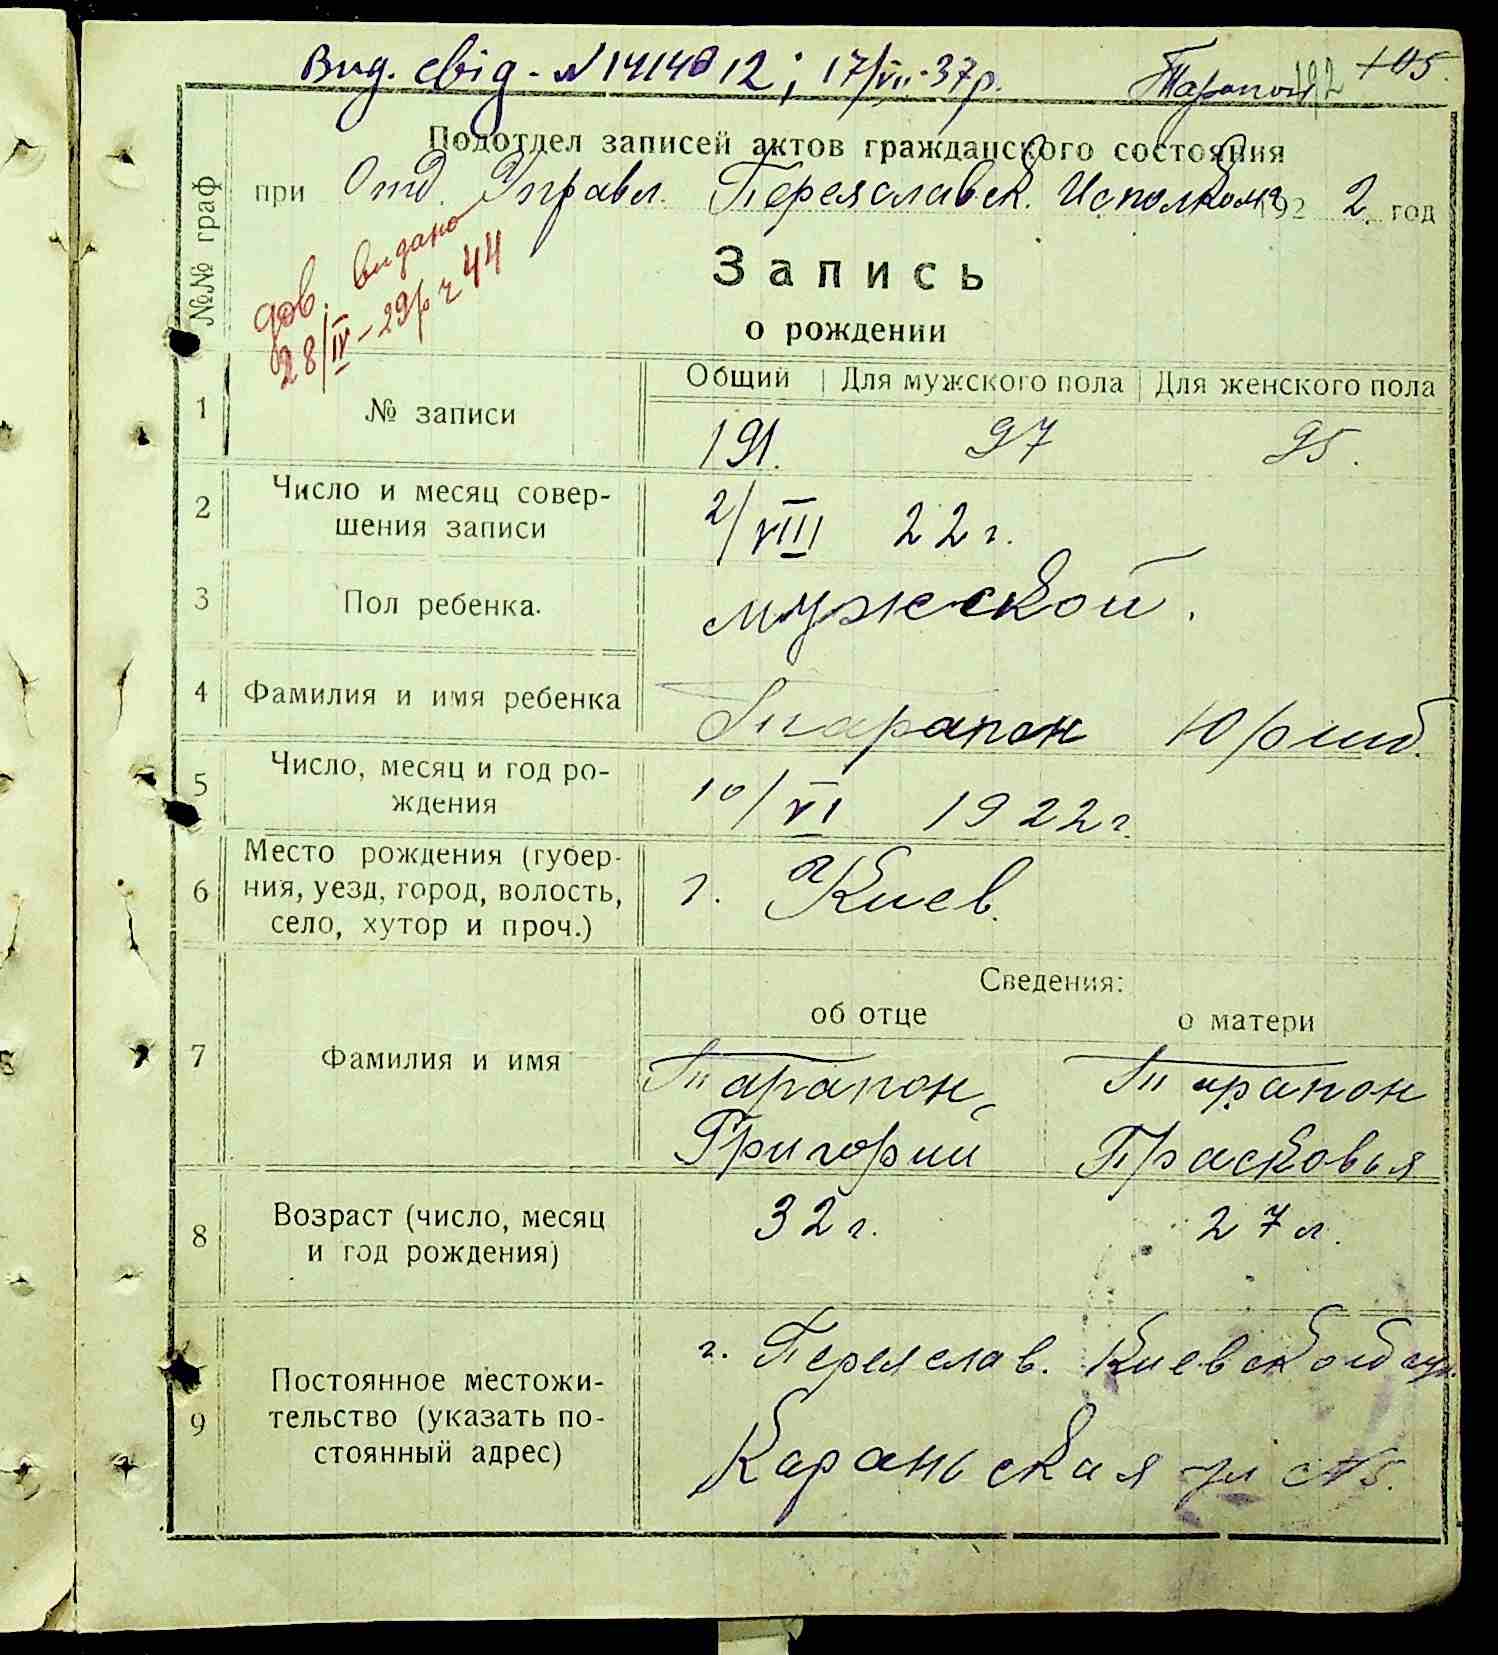 Вид. свід. N 1414812; 17/VII-37р.
Тарапон 192 105.
Подотдел записей актов гражданского состояния
при Отд. Управл. Переяславск. Исполкома 1922 год
№№ граф
дов. видано
28/IV-29р ч 44
Запись
о рождении
Общий Для мужского пола Для женского пола
1 № записи 191. 97 95.
2 Число и месяц совер-
шения записи 2/VIII 22 г.
3 Пол ребенка. мужской.
4 Фамилия и имя ребенка Тарапон Юрий.
5 Число, месяц и год ро-
ждения 10/VI 1922 г.
6 Место рождения (губер-
ния, уезд, город, волость, г. Киев.
село, хутор и проч.)
Сведения:
об отце о матери
7 Фамилия и имя Тарапон, Тарапон
Григорий Прасковья
8 Возраст (число, месяц 32 г. 27 л.
и год рождения)
г. Переяслав. Киевской губ.
9 Постоянное местожи-
тельство (указать по-
стоянный адрес) Караньская ул № 5.